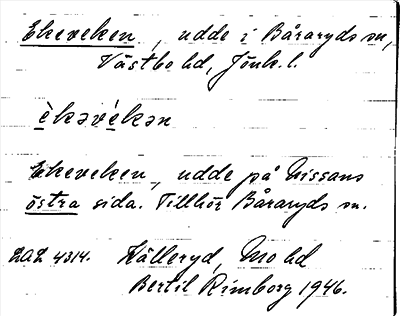 Ekeveken, udde i Båraryds sn,
Västbo hd, Jönk. l.
èkəvékən
Ekeveken, udde på Nissans
östra sida. Tillhör Båraryds sn.
LAL 4314. Källeryd, Mo hd
Bertil Rimborg 1946.